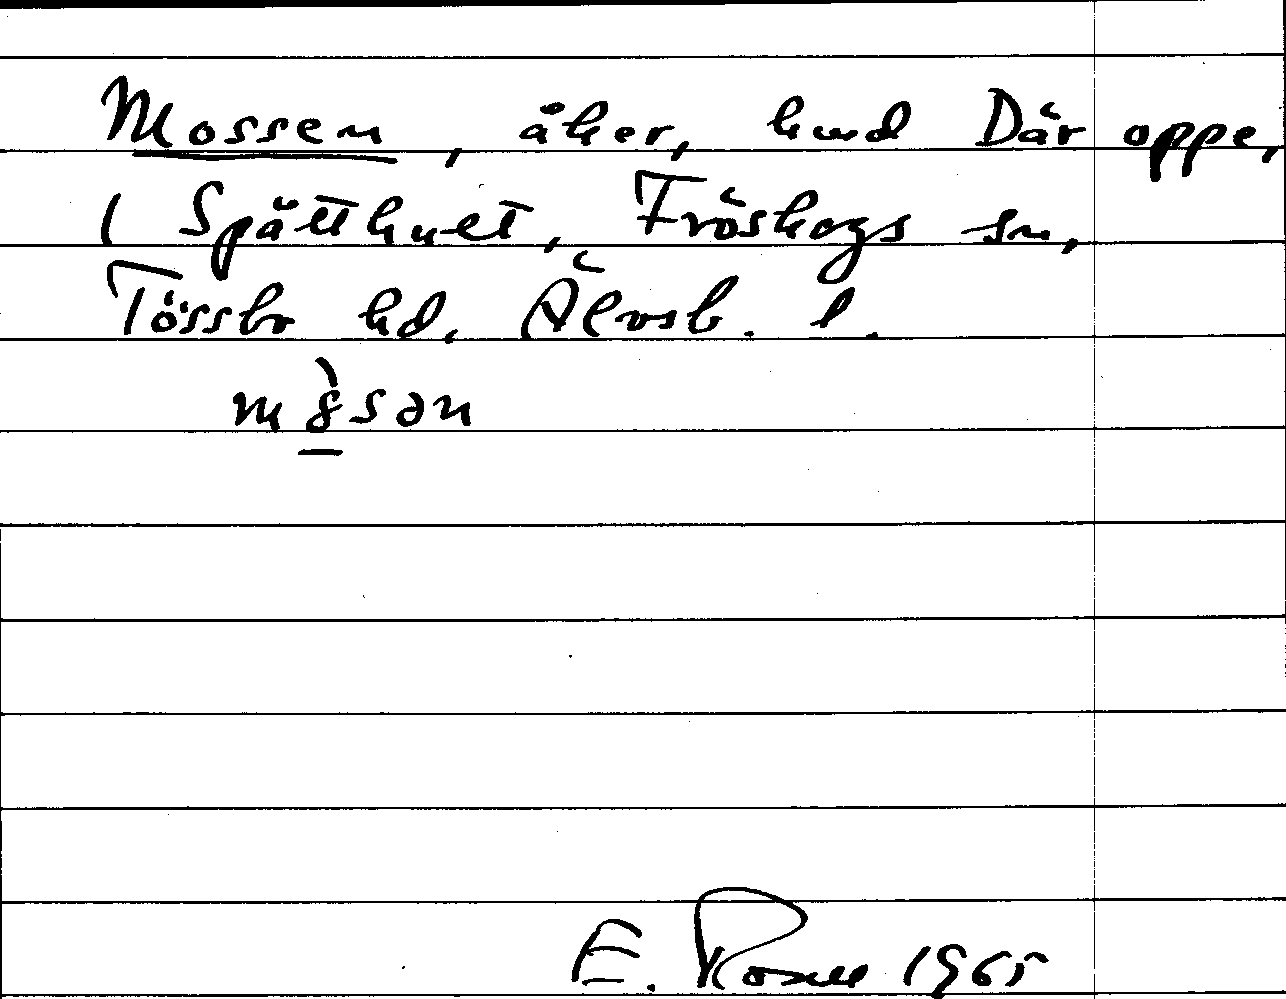 Mossen, åker, hmd Där oppe,
( Spätthult, Fröskogs sn,
Tössbo hd, Älvsb. l.
E. Rosell 1965